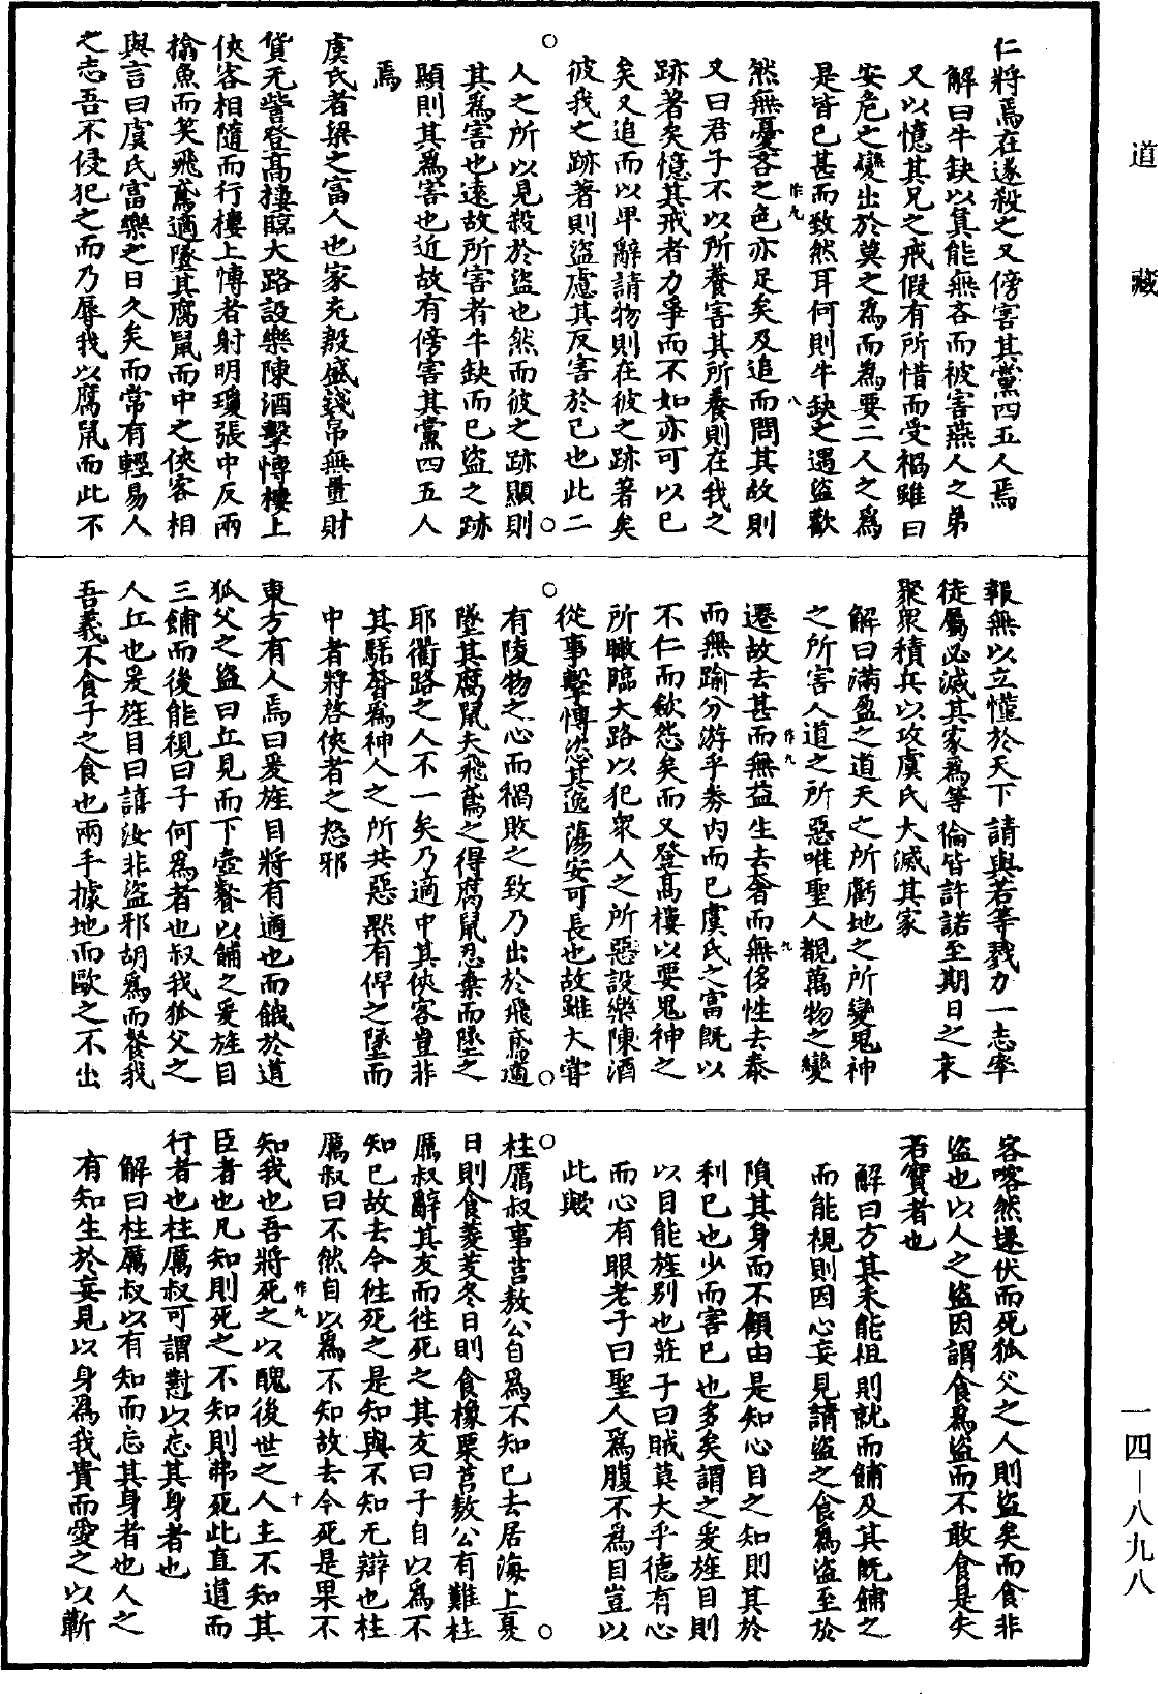 道藏
仁將焉在遂殺之又傍害其黨四五人焉
解曰牛缺以其能無吝而被害燕人之弟
又以憶其兄之戒假有所惜而受禍雖曰
安危之變出於莫之為而為要二人之為
是皆已甚而致然耳何則牛缺之遇盜歡
然無憂吝之色亦足矣及追而問其故則
又曰君子不以所養害其所養則在我之
跡著矣憶其戒者力爭而不如亦可以已
矣又追而以卑辭請物則在彼之跡著矣
彼我之跡著則盜慮其反害於己也此二
人之所以見殺於盜也然而彼之跡顯則
其為害也遠故所害者牛缺而已盜之跡
顯則其為害也近故有傍害其黨四五人
焉
虞氏者梁之富人也家充殷盛錢帛無量財
貨无訾登高樓臨大路設樂陳酒擊博樓上
俠客相隨而行樓上博者射明瓊張中反兩
㩉魚而笑飛鳶適墜其腐鼠而中之俠客相
與言曰虞氏富樂之日久矣而常有輕易人
之志吾不侵犯之而乃辱我以腐鼠而此不
報無以立慬於天下請與若等戮力一志率
徒屬必滅其家為等倫皆許諾至期日之夜
聚眾積兵以攻虞氏大滅其家
解曰滿盈之道天之所虧地之所變鬼神
之所害人道之所惡唯聖人觀萬物之變
遷故去甚而無益生去奢而無侈性去泰
而無踰分游乎券內而已虞氏之富既以
不仁而斂怨矣而又登高樓以要鬼神之
所瞰臨大路以犯眾人之所惡設樂陳酒
從事擊博恣其逸蕩安可長也故雖大嘗
有陵物之心而禍敗之致乃出於飛鳶適
墜其腐鼠夫飛鳶之得腐鼠忍棄而墜之
耶衢路之人不一矣乃適中其俠客豈非
其驕奢為神人之所共惡默有俾之墜而
中者將啓俠者之怒邪
東方有人焉曰爰旌目將有適也而餓於道
狐父之盜曰丘見而下壺餐以餔之爰旌目
三餔而後能視曰子何為者也叔我狐父之
人丘也爰旌目曰譆汝非盜邪胡為而餐我
吾義不食子之食也兩手據地而歐之不出
客喀然遂伏而死狐父之人則盜矣而食非
盜也以人之盜因謂食為盜而不敢食是失
若實者也
解曰方其未能視則就而餔及其既餔之
而能視則因心妄見請盜之食為盜至於
隕其身而不顧由是知心目之知則其於
利已也少而害已也多矣謂之爰旌目則
以目能旌別也莊子曰賊莫大乎德有心
而心有眼老子曰聖人為腹不為目豈以
此歟
柱厲叔事莒敖公自為不知己去居海上夏
日則食菱芰冬日則食橡栗莒敖公有難柱
厲叔辭其友而往死之其友曰子自以為不
知己故去今往死之是知與不知无辯也柱
厲叔曰不然自以為不知故去今死是果不
知我也吾將死之以醜後世之人主不知其
臣者也凡知則死之不知則弗死此直道而
行者也柱厲叔可謂懟以忘其身者也
解曰柱厲叔以有知而忘其身者也人之
有知生於妄見以身為我貴而愛之以蘄
一四—八九八